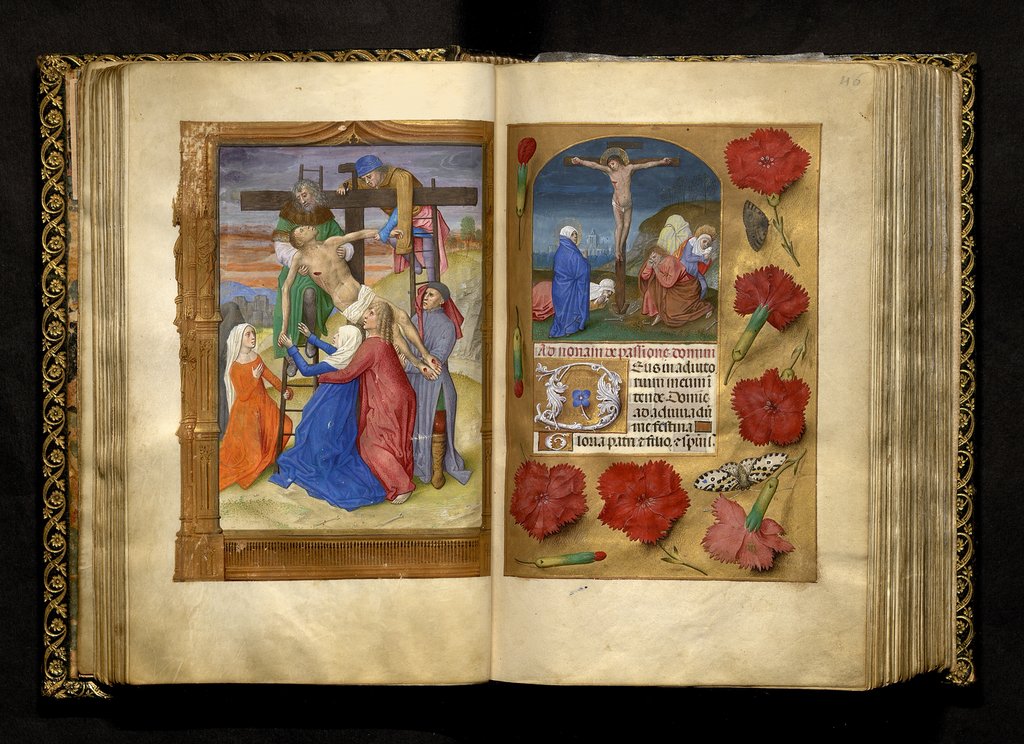 46
Ad nonam de passione domini
Deus in adiuto
rium meum i
tende. Domine
ad adiuuādū
me festina
Gloria patri et filio, et spiri.